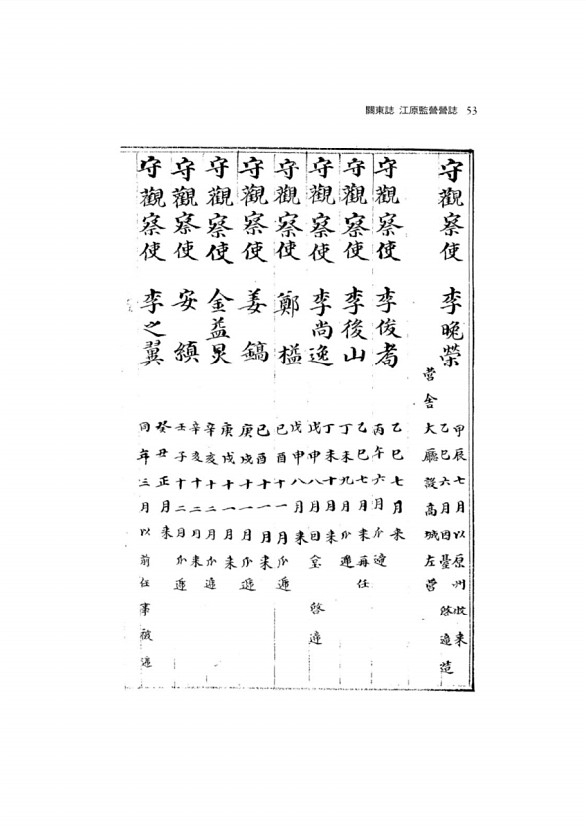 關東誌 江原監營營誌 53
守觀察使 李晚榮
甲辰七月以原州牧来
乙巳六月因臺啓遞造
營舍大廳設高城左營
守觀察使 李俊耉
乙巳七月来
丙午六月瓜遞
守觀察使 李後山
乙巳七月来再任
丁未九月瓜遞
守觀察使 李尚逸
丁未十月来
戊申八月因臺啓遞
守觀察使 鄭榏
戊申八月来
己酉十一月瓜遞
守觀察使 姜鎬
己酉十一月来
庚戌十一月瓜遞
守觀察使 金益炅
庚戌十一月来
辛亥十二月瓜遞
守觀察使 安縝
辛亥十二月来
壬子十二月瓜遞
守觀察使 李之翼
癸丑正月来
同年三月以前任事被遞